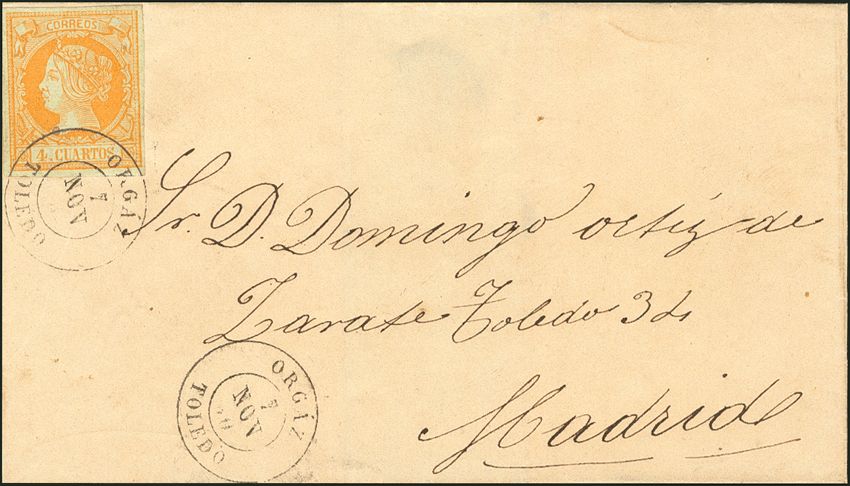 CORREOS
4. CUARTOS
ORGÁZ
7
NOV
TOLEDO
Sr. D. Domingo ortiz de
Zarate Toledo 3 ds
Madrid
ORGÁZ
7
NOV
TOLEDO